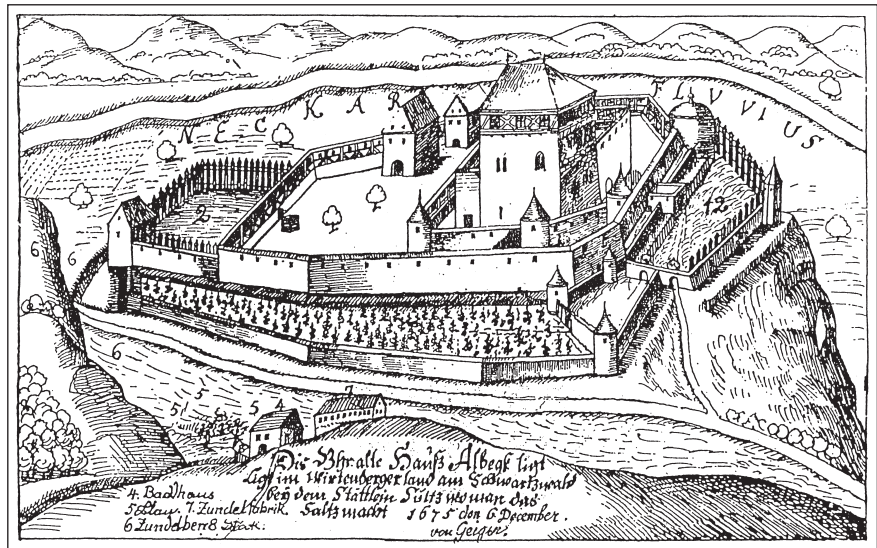 NECKAR FLVVIUS
2
12
13
6
6
6
5
5
5 4
7
Dis Vhr alte Hauß Albegk ligt
ligt im Wirtenberger land am Schwartzwald
bey dem Stättlein Sultz wo man das
Saltz macht 1675 den 6 December.
von Geiger.
4. Badhaus
5 7. Zundelfabrik
6 Zundelberg 8